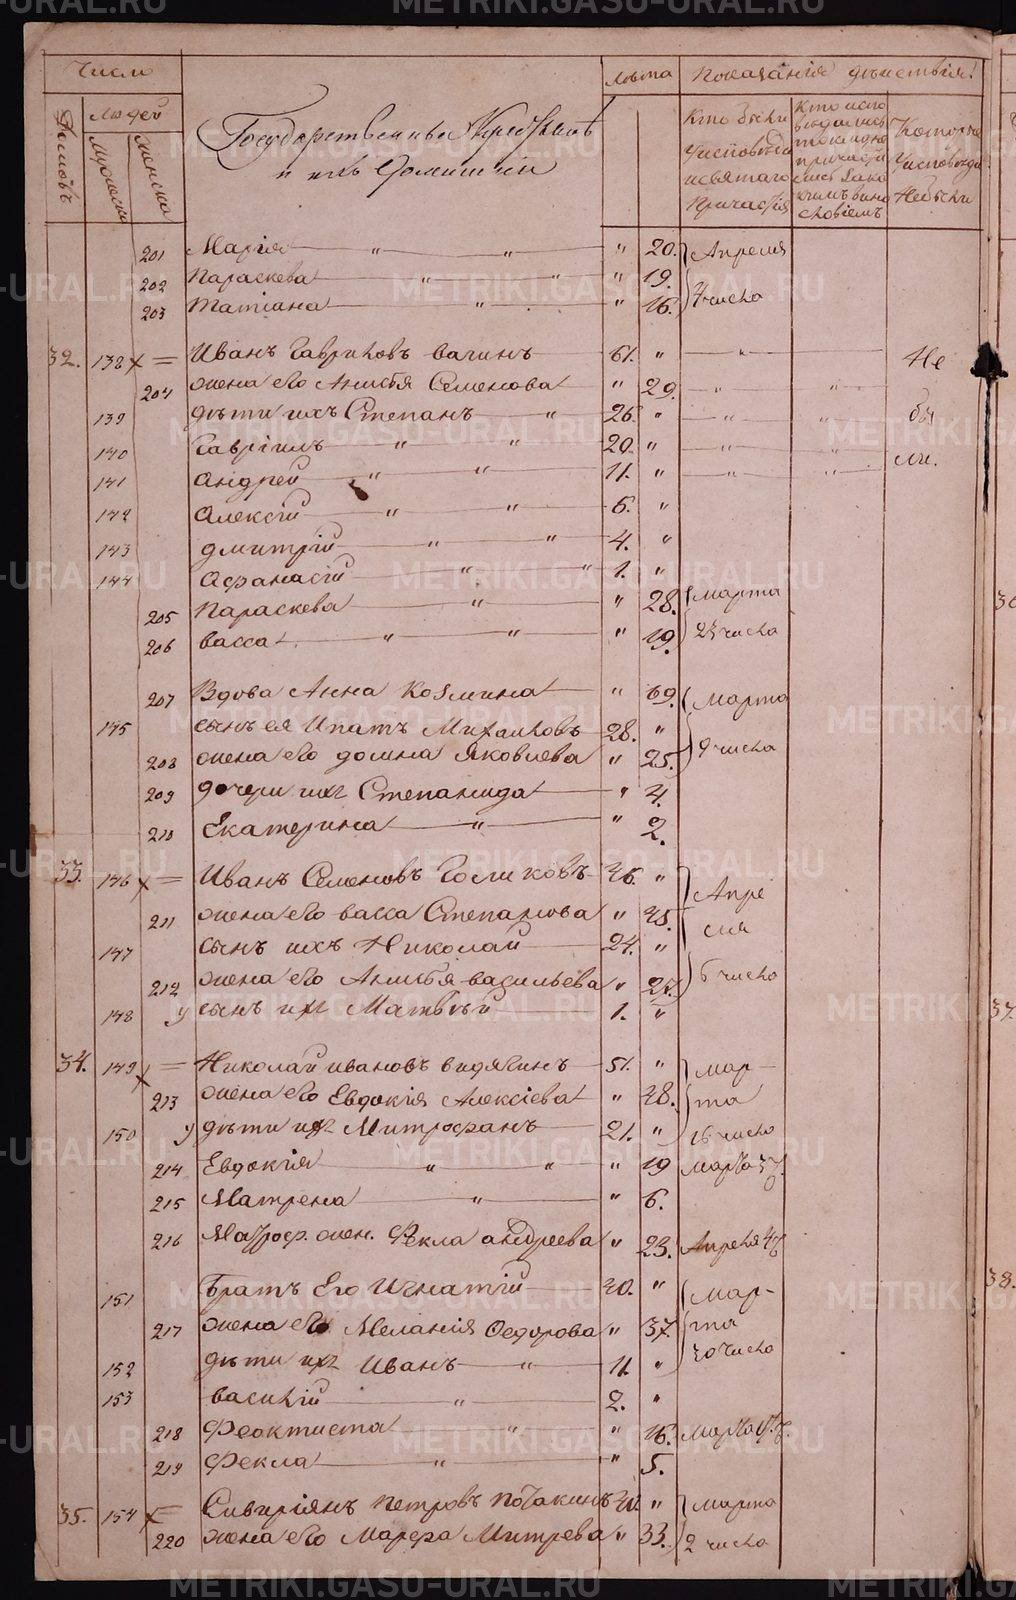 Числи
Домовъ
Людей
Мужески
Женски
Государственные Крестьянѣ
и ихъ Домашніи
Лѣта
Показанія дѣиствія.
Кто были
Уисповѣди
исвятаго
Причастія
Кто испо
вѣдались
токмо а не
причасти
лись и за ка
кимъ вино
словіемъ
Которые
Уисповѣди
Небыли
201 Марія — " — " — " 20. Апреля
202 Параскева — " — " — " 19.
203 Татіана — " — " 16. 4 числа
32. 138 х = Иванъ Гавриловъ Вагинъ — 61. " — " — Не
204 жена его Анисья Семенова — " 29. — " "
139 дѣти ихъ Степанъ — " 26. " — " " бы
140 Гавріилъ — " " 20. " — " "
141 Андрей — " " 11. " — " " ли.
142 Алексій — " — " — 6. "
143 Дмитрій — " — " 4. "
144 Афанасій — " — " 1. "
205 Параскева — " — " 28. Марта
206 Васса — " — " — " 19. 23 числа
207 Вдова Анна Козмина — " 69. Марта
145 сынъ ея Ипатъ Михаиловъ — 28. "
208 жена его Домна Яковлева " 25. 9 числа
209 дочери ихъ Степанида — " 4.
210 Екатерина — " — " 2.
33. 146 х = Иванъ Семеновъ Голиковъ — 46. " Апре
211 жена его Васса Степанова " 45. ля
147 сынъ ихъ Николай — 24. "
212 жена его Анисья Васильева " 24. 6 числа
148 у сынъ ихъ Матвѣй — 1. "
34. 149 х = Николай Ивановъ Видягинъ — 51. " Мар-
213 жена его Евдокія Алексіева — " 48. та
150 у дѣти ихъ Митрофанъ — 21. " 16 числа
214 Евдокія — " — " — " 19 Марта
215 Матрена — " — " 6.
216 Митроф. жен. Фекла Андреева " 23. Апреля
151 Братъ Его Игнатій — 40. " Мар-
217 жена его Меланія Ѳедорова " 37. та
152 дѣти ихъ Иванъ — " — 11. " 30 числа
153 Василій — " — 2. "
218 Феоктиста — " — " 16. Марта
219 Фекла — " — " 5.
35. 154 х = Сивиріянъ Петровъ " Марта
220 жена его Марфа Митрева " 33. 2 числа
36
37.
38.
METRIKI.GASO-URAL.RU